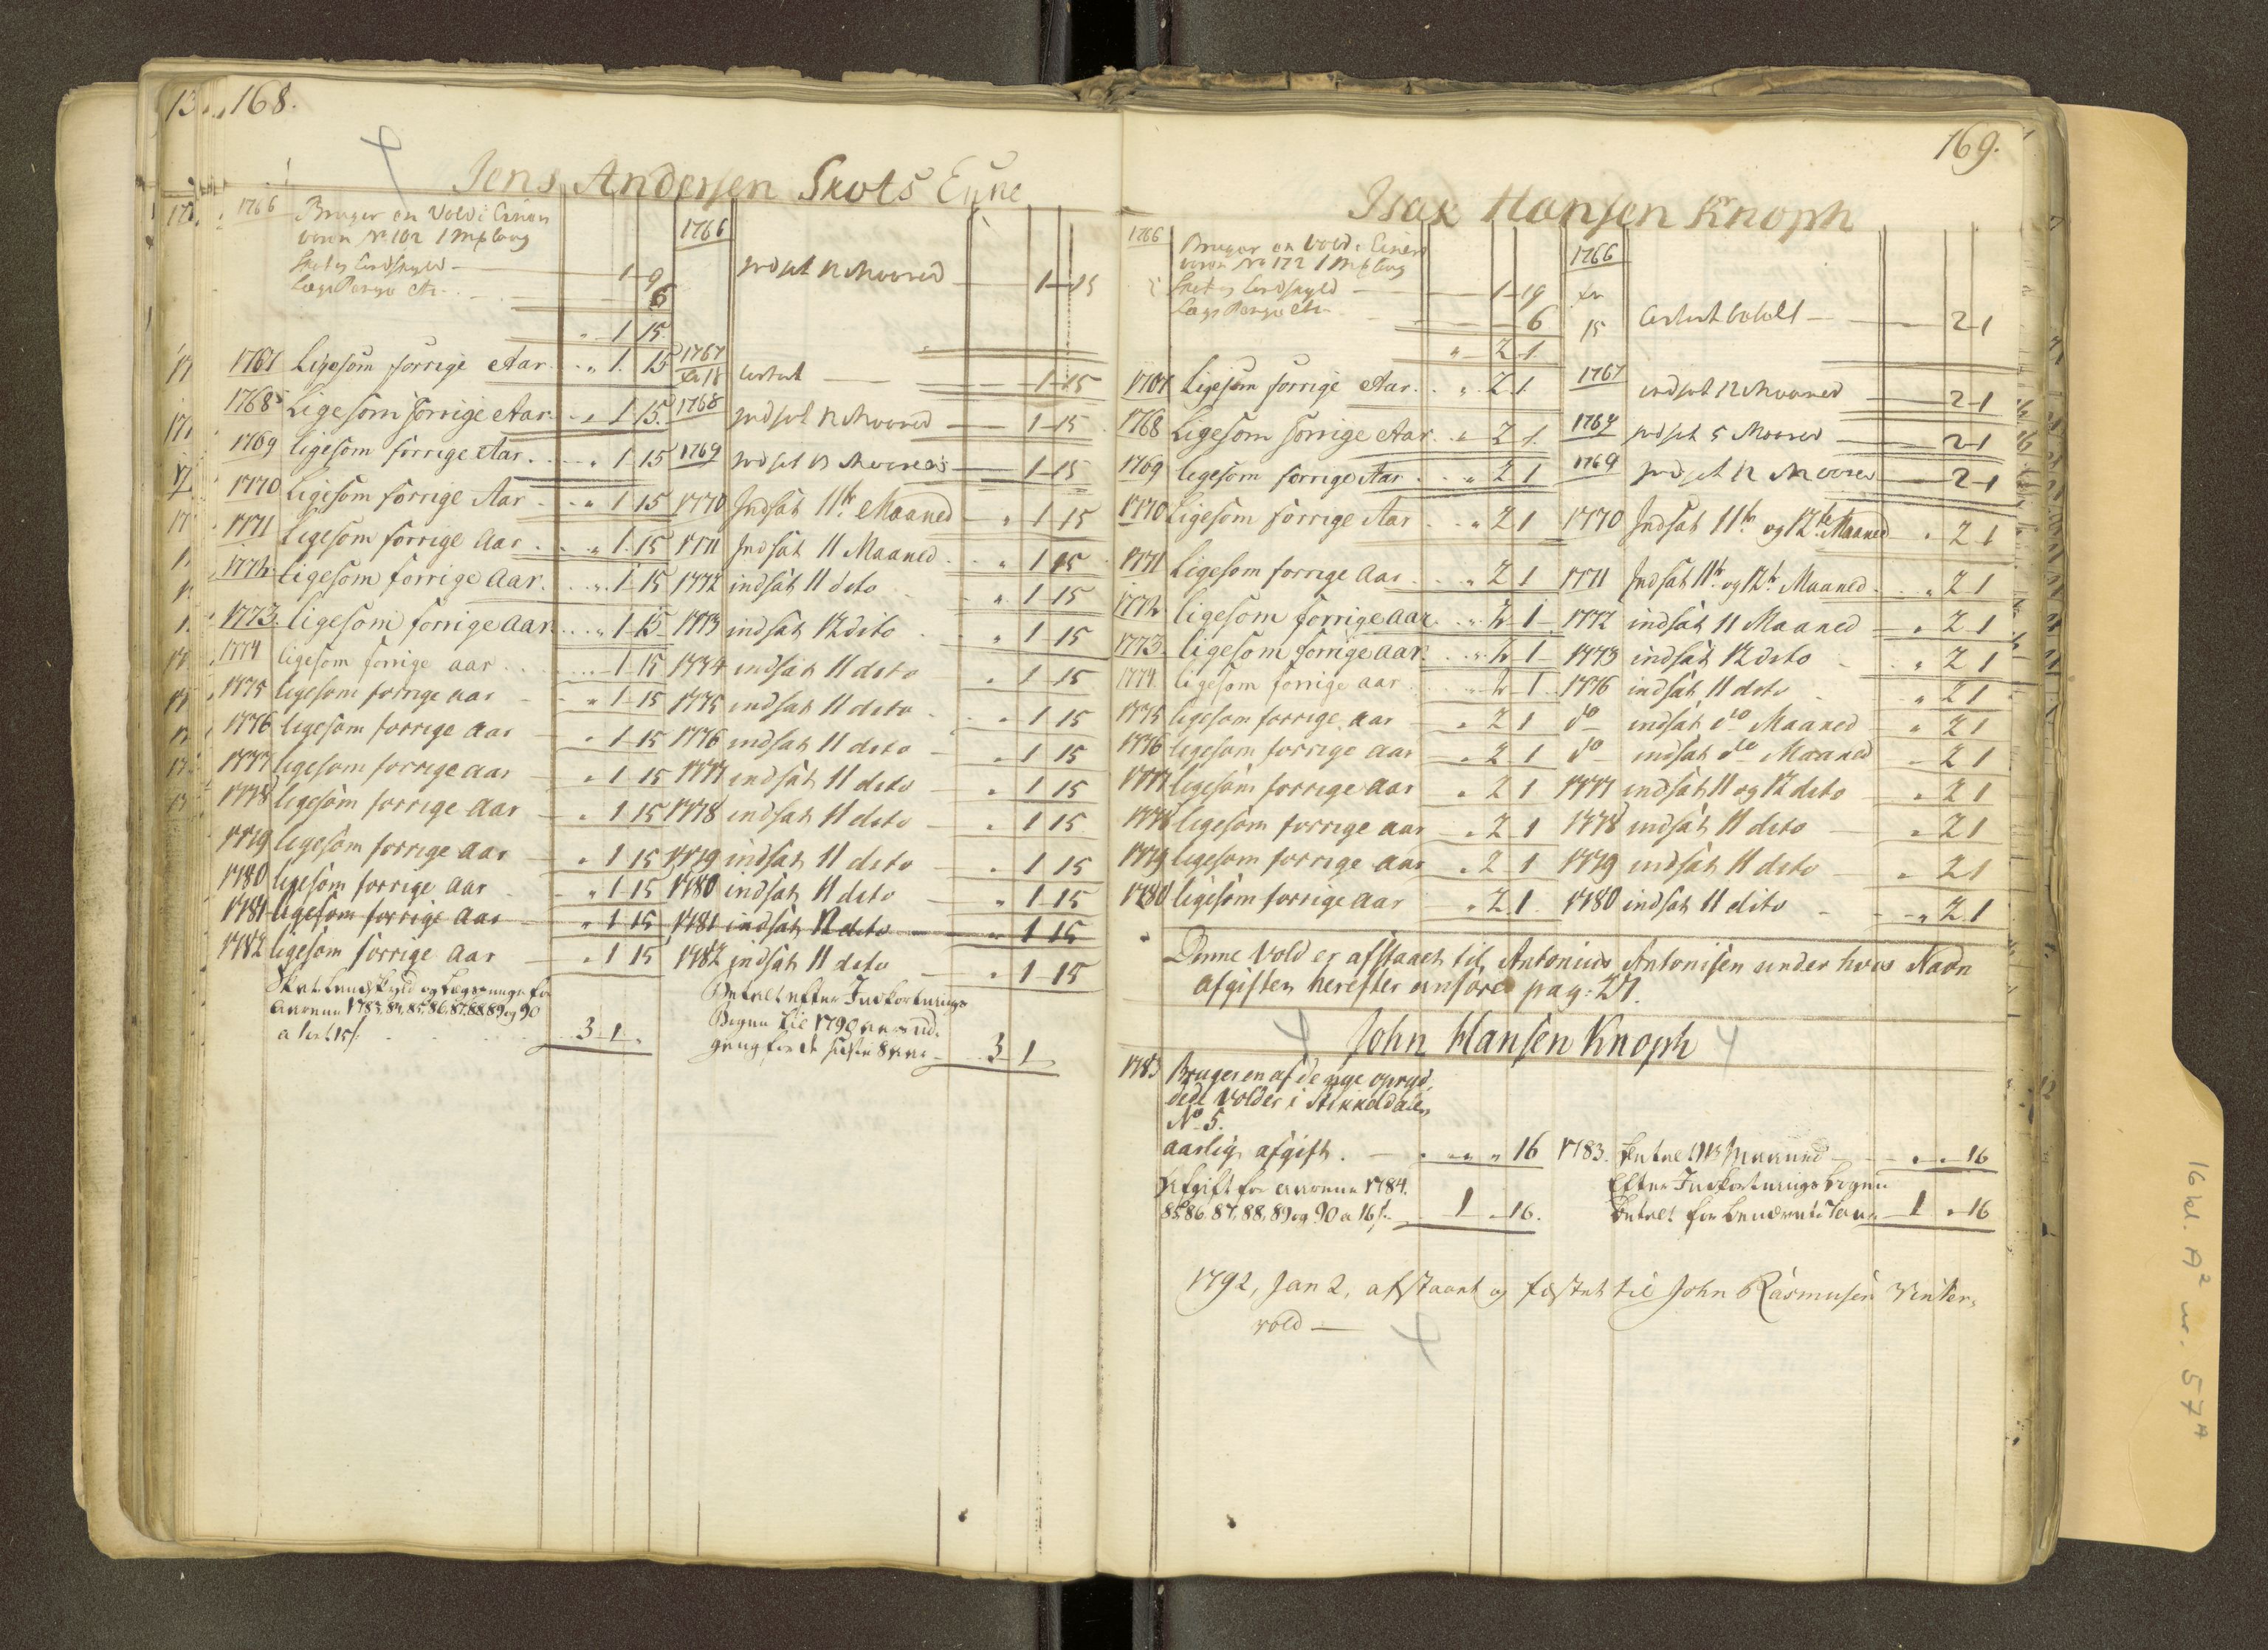 168.
Jens Andersen Skots Enke
1766 Bruger en Vold i
No 102 1 Mß Long
Skat og Landskyld 1 9
Lægs Penge 6
" 1 15
1767 Ligesom forrige Aar " 1 15
1768 Ligesom forrige Aar " 1 15
1769 ligesom forrige Aar " 1 15
1770 Ligesom forrige Aar " 1 15
1771 Ligesom forrige Aar " 1 15
1772 Ligesom forrige Aar " 1 15
1773 ligesom forrige Aar " 1 15
1774 ligesom forrige aar 1 15
1775 ligesom forrige aar " 1 15
1776 ligesom forrige aar " 1 15
1777 ligesom forrige aar " 1 15
1778 ligesom forrige aar " 1 15
1779 ligesom forrige aar " 1 15
1780 ligesom forrige aar " 1 15
1781 ligesom forrige aar " 1 15
1782 ligesom forrige aar " 1 15
Skat Landskyld og Lægspenge for
Aarene 1783, 84, 85, 86, 87, 88, 89 og 90
a 1 ort 15 ß 3 1 "
1766
indsat 12 Maaned 1 15
1767
1 15
1768 indsat 12 Maaned 1 15
1769 indsat 13 Maaned 1 15
1770 Indsat 11te Maaned " 1 15
1771 Indsat 11 Maaned " 1 15
1772 indsat 11 dito " 1 15
1773 indsat 12 dito " 1 15
1774 indsat 11 dito " 1 15
1775 indsat 11 dito " 1 15
1776 indsat 11 dito " 1 15
1777 indsat 11 dito " 1 15
1778 indsat 11 dito " 1 15
1779 indsat 11 dito " 1 15
1780 indsat 11 dito " 1 15
1781 indsat 12 dito " 1 15
1782 indsat 11 dito " 1 15
Betalt efter Indkortnings
Bogen til 1790 Aars ud-
gang for de sidste 8 Aar 3 1 "
169.
Isax Hansen Knoph
1766 Bruger en Vold i
No 172 1 Mß Long
Skat og Landskyld 1 19
Lægs Penge 6
" 2 1
1767 Ligesom forrige Aar " 2 1
1768 Ligesom forrige Aar " 2 1
1769 ligesom forrige Aar " 2 1
1770 Ligesom forrige Aar " 2 1
1771 Ligesom forrige Aar " 2 1
1772 ligesom forrige Aar " 2 1
1773 ligesom forrige Aar " 2 1
1774 ligesom forrige aar " 2 1
1775 ligesom forrige aar " 2 1
1776 ligesom forrige aar " 2 1
1777 ligesom forrige aar " 2 1
1778 ligesom forrige aar " 2 1
1779 ligesom forrige aar " 2 1
1780 ligesom forrige aar " 2 1
1766
15 betalt 2 1
1767 indsat 12 Maaned 2 1
indsat 5 Maaned 2 1
1769 indsat 12 Maaned 2 1
1770 Indsat 11te og 12te Maaned " 2 1
1771 Indsat 11te og 12te Maaned " 2 1
1772 indsat 11 Maaned " 2 1
1773 indsat 12 dito " 2 1
1776 indsat 11 dito " 2 1
do indsat do Maaned " 2 1
do indsat do Maaned " 2 1
1777 indsat 11 og 12 dito " 2 1
1778 indsat 11 dito " 2 1
1779 indsat 11 dito " 2 1
1780 indsat 11 dito " 2 1
Denne Vold er afstaaet til Antonius Antonisen under hvis Navn
afgiften herefter anføres pag: 27.
John Hansen Knoph
1783 Bruger en af de nye opryd-
dede Volder i Stikkeldalen
No 5.
aarlig afgift " " 16
Afgift for Aarene 1784.
85, 86, 87, 88, 89 og 90 a 16 ß 1 " 16.
1783. betalt Maaned " " 16
Efter Indkortningsbogen
betalt for benævnte 7 Aar 1 " 16
1792, Jan 2, afstaaet og fæstet til John Rasmusen Vinter-
vold
16 kl. A2 nr. 57A